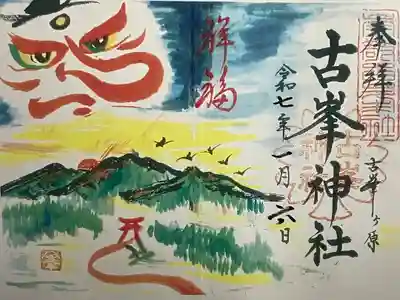 奉拝
古峯ヶ原
古峯神社
令和七年一月六日
祥福